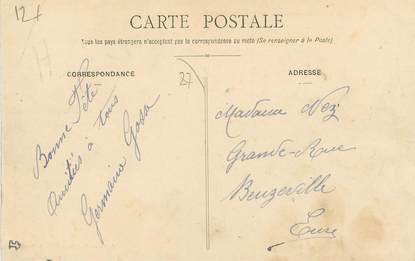 12x
CARTE POSTALE
Tous les pays étrangers n'acceptent pas la correspondance au recto (Se renseigner à la Poste)
H
CORRESPONDANCE
27
ADRESSE
Bonne Fête
Amitiés à tous
Germaine
Madame Nez
Grande-Rue
Beuzeville
Eure